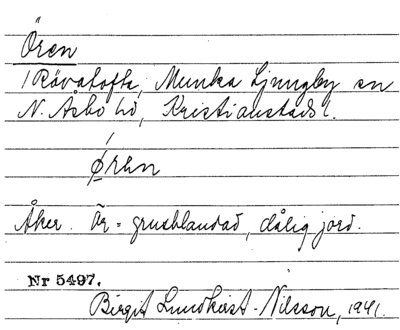 Ören
i Rävatofta, Munka Ljungby sn
N. Åsbo hd, Kristianstads l.
ǿren
Åker. Ör = grusblandad, dålig jord.
Nr 5497.
Birgit Lundkvist-Nilsson, 1941.